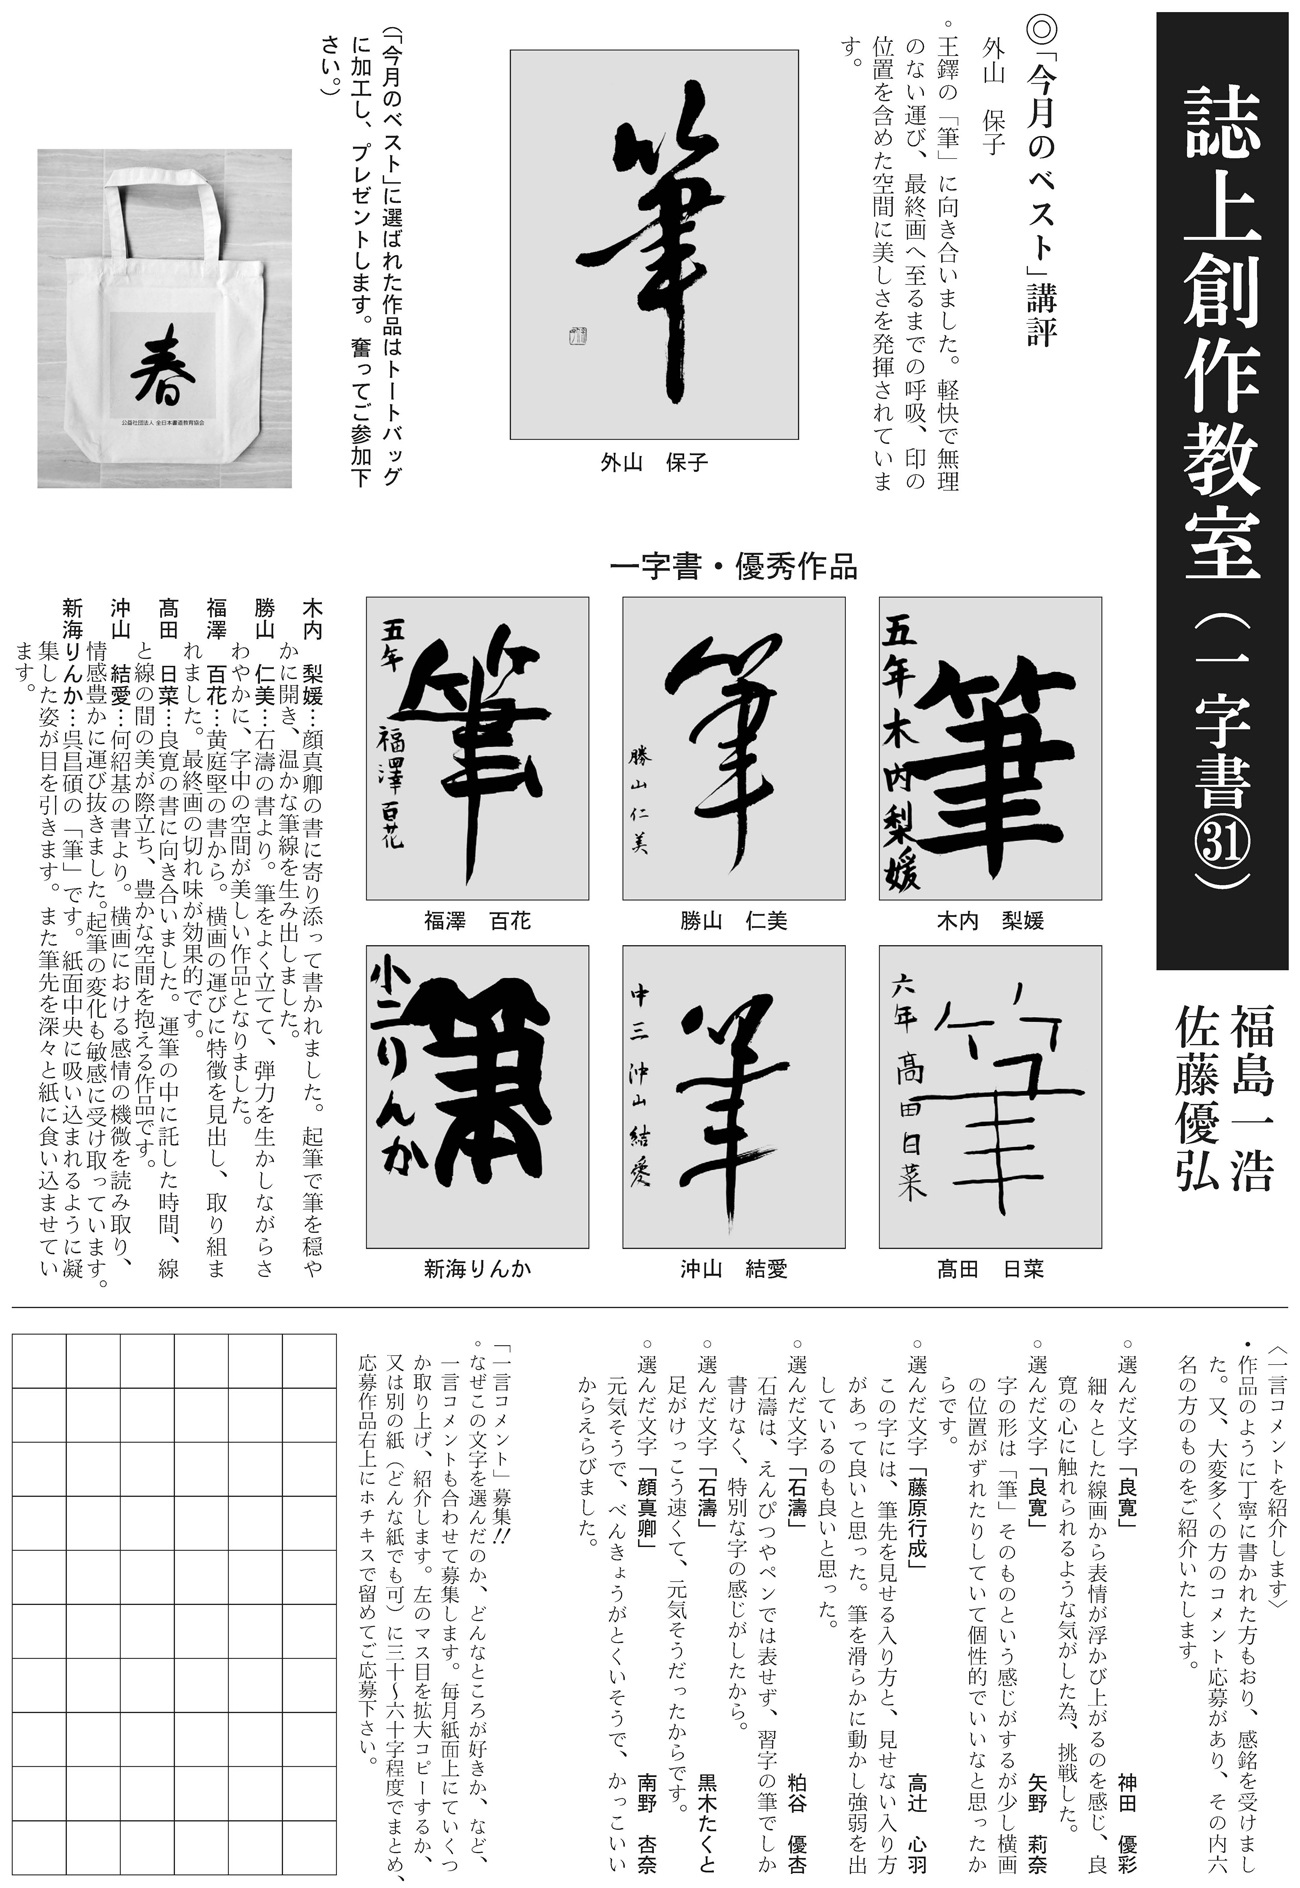 誌上創作教室（一字書㉛）
福島一浩
佐藤優弘
◎「今月のベスト」講評
外山　保子
○王鐸の「筆」に向き合いました。軽快で無理
のない運び、最終画へ至るまでの呼吸、印の
位置を含めた空間に美しさを発揮されていま
す。
筆
外山　保子
（「今月のベスト」に選ばれた作品はトートバッグ
に加工し、プレゼントします。奮ってご参加下
さい。）
春
公益社団法人 全日本書道教育協会
一字書・優秀作品
筆
五年　木内梨媛
木内　梨媛
筆
勝山仁美
勝山　仁美
筆
五年
福澤百花
福澤　百花
筆
六年　髙田日菜
髙田　日菜
筆
中三　沖山結愛
沖山　結愛
筆
小二りんか
新海りんか
木内　梨媛…顔真卿の書に寄り添って書かれました。起筆で筆を穏や
かに開き、温かな筆線を生み出しました。
勝山　仁美…石濤の書より。筆をよく立てて、弾力を生かしながらさ
わやかに、字中の空間が美しい作品となりました。
福澤　百花…黄庭堅の書から。横画の運びに特徴を見出し、取り組ま
れました。最終画の切れ味が効果的です。
髙田　日菜…良寛の書に向き合いました。運筆の中に託した時間、線
と線の間の美が際立ち、豊かな空間を抱える作品です。
沖山　結愛…何紹基の書より。横画における感情の機微を読み取り、
情感豊かに運び抜きました。起筆の変化も敏感に受け取っています。
新海りんか…呉昌碩の「筆」です。紙面中央に吸い込まれるように凝
集した姿が目を引きます。また筆先を深々と紙に食い込ませてい
ます。
〈一言コメントを紹介します〉
・作品のように丁寧に書かれた方もおり、感銘を受けまし
た。又、大変多くの方のコメント応募があり、その内六
名の方のものをご紹介いたします。
○選んだ文字「良寛」　神田　優彩
細々とした線画から表情が浮かび上がるのを感じ、良
寛の心に触れられるような気がした為、挑戦した。
○選んだ文字「良寛」　矢野　莉奈
字の形は「筆」そのものという感じがするが少し横画
の位置がずれたりしていて個性的でいいなと思ったか
らです。
○選んだ文字「藤原行成」　高辻　心羽
この字には、筆先を見せる入り方と、見せない入り方
があって良いと思った。筆を滑らかに動かし強弱を出
しているのも良いと思った。
○選んだ文字「石濤」　粕谷　優杏
石濤は、えんぴつやペンでは表せず、習字の筆でしか
書けなく、特別な字の感じがしたから。
○選んだ文字「石濤」　黒木たくと
足がけっこう速くて、元気そうだったからです。
○選んだ文字「顔真卿」　南野　杏奈
元気そうで、べんきょうがとくいそうで、かっこいい
からえらびました。
「一言コメント」募集!!
○なぜこの文字を選んだのか、どんなところが好きか、など、
一言コメントも合わせて募集します。毎月紙面上にていくつ
か取り上げ、紹介します。左のマス目を拡大コピーするか、
又は別の紙（どんな紙でも可）に三十～六十字程度でまとめ、
応募作品右上にホチキスで留めてご応募下さい。